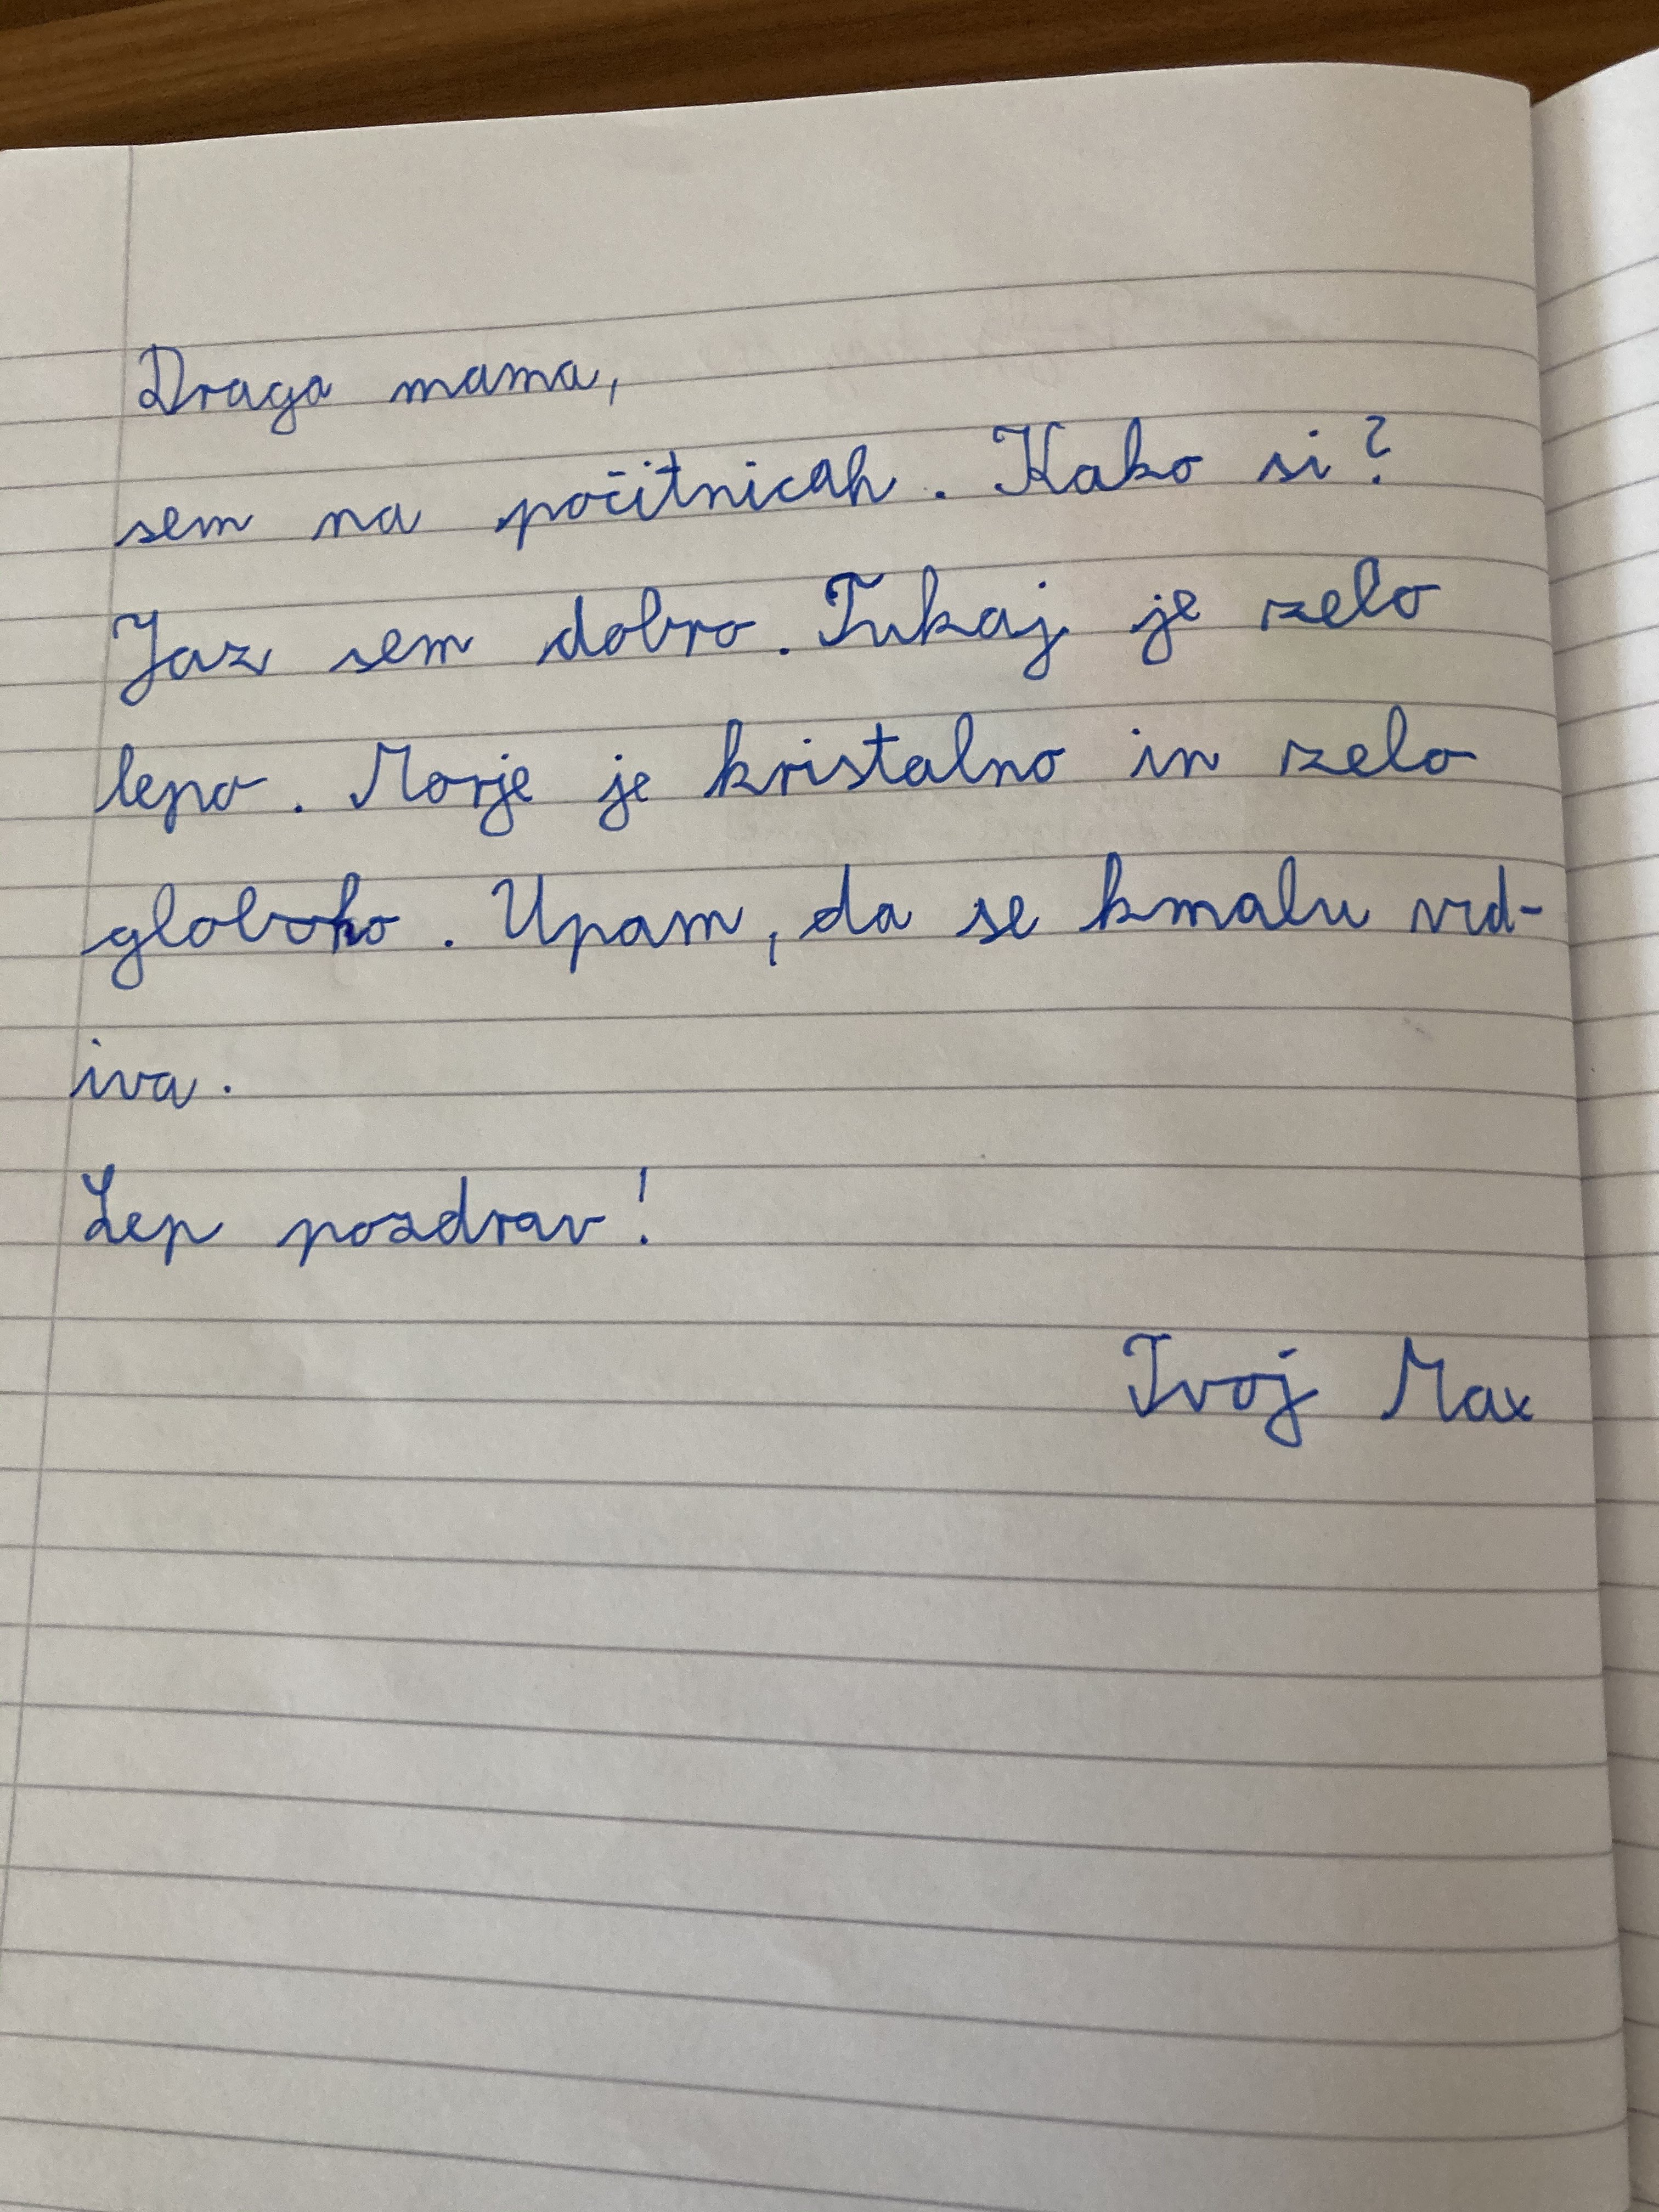 Draga mama,
sem na počitnicah. Kako si?
Jaz sem dobro. Tukaj je zelo
lepo. Morje je kristalno in zelo
globoko. Upam, da se kmalu vid-
iva.
Lep pozdrav!
Tvoj Max